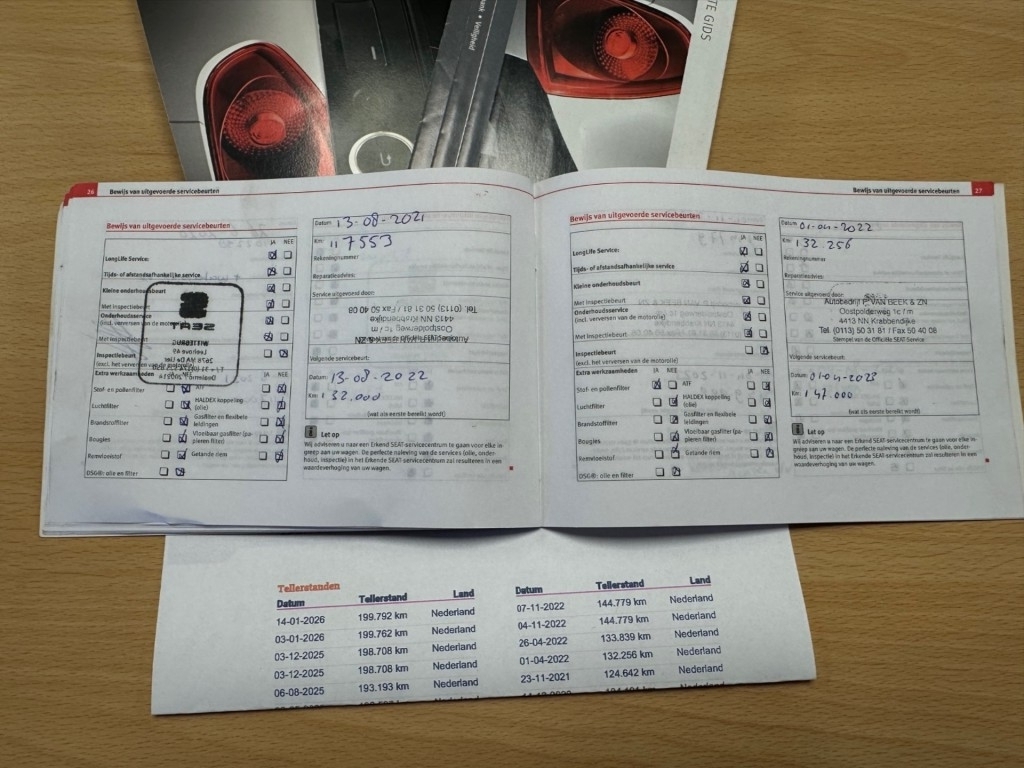 TE GIDS
Veiligheid
26 Bewijs van uitgevoerde servicebeurten
Bewijs van uitgevoerde servicebeurten
JA NEE
LongLife Service:
Tijds- of afstandsafhankelijke service
Kleine onderhoudsbeurt
Met Inspectiebeurt
Onderhoudsservice
(incl. verversen van de motorolie)
Met Inspectiebeurt
Inspectiebeurt
(excl. het verversen van de motorolie)
Extra werkzaamheden JA NEE JA NEE
Stof- en pollenfilter ATF
Luchtfilter HALDEX koppeling (olie)
Brandstoffilter Gasfilter en flexibele leidingen
Bougies Vloeibaar gasfilter (papieren filter)
Remvloeistof Getande riem
DSG®: olie en filter
SEAT
Datum 13-08-2021
Km: 117553
Rekeningnummer
Reparatieadvies:
Service uitgevoerd door:
Tel. (0113) 50 31 81 / Fax 50 40 08
4413 NN Krabbendijke
Oostpolderweg 1c / m
Volgende servicebeurt:
Datum: 13-08-2022
Km: 132.000
(wat als eerste bereikt wordt)
Let op
Wij adviseren u naar een Erkend SEAT-servicecentrum te gaan voor elke ingreep aan uw wagen. De perfecte naleving van de services (olie, onderhoud, inspectie) in het Erkende SEAT-servicecentrum zal resulteren in een waardeverhoging van uw wagen.
Bewijs van uitgevoerde servicebeurten 27
Bewijs van uitgevoerde servicebeurten
JA NEE
LongLife Service:
Tijds- of afstandsafhankelijke service
Kleine onderhoudsbeurt
Met Inspectiebeurt
Onderhoudsservice
(incl. verversen van de motorolie)
Met Inspectiebeurt
Inspectiebeurt
(excl. het verversen van de motorolie)
Extra werkzaamheden JA NEE JA NEE
Stof- en pollenfilter ATF
Luchtfilter HALDEX koppeling (olie)
Brandstoffilter Gasfilter en flexibele leidingen
Bougies Vloeibaar gasfilter (papieren filter)
Remvloeistof Getande riem
DSG®: olie en filter
Datum 01-04-2022
Km: 132.256
Rekeningnummer
Reparatieadvies:
Service uitgevoerd door:
Autobedrijf P. VAN BEEK & ZN
Oostpolderweg 1c / m
4413 NN Krabbendijke
Tel. (0113) 50 31 81 / Fax 50 40 08
Stempel van de Officiële SEAT Service
Volgende servicebeurt:
Datum: 01-04-2023
Km: 147.000
(wat als eerste bereikt wordt)
Let op
Wij adviseren u naar een Erkend SEAT-servicecentrum te gaan voor elke ingreep aan uw wagen. De perfecte naleving van de services (olie, onderhoud, inspectie) in het Erkende SEAT-servicecentrum zal resulteren in een waardeverhoging van uw wagen.
Tellerstanden
Datum Tellerstand Land
14-01-2026 199.792 km Nederland
03-01-2026 199.762 km Nederland
03-12-2025 198.708 km Nederland
03-12-2025 198.708 km Nederland
06-08-2025 193.193 km Nederland
Datum Tellerstand Land
07-11-2022 144.779 km Nederland
04-11-2022 144.779 km Nederland
26-04-2022 133.839 km Nederland
01-04-2022 132.256 km Nederland
23-11-2021 124.642 km Nederland